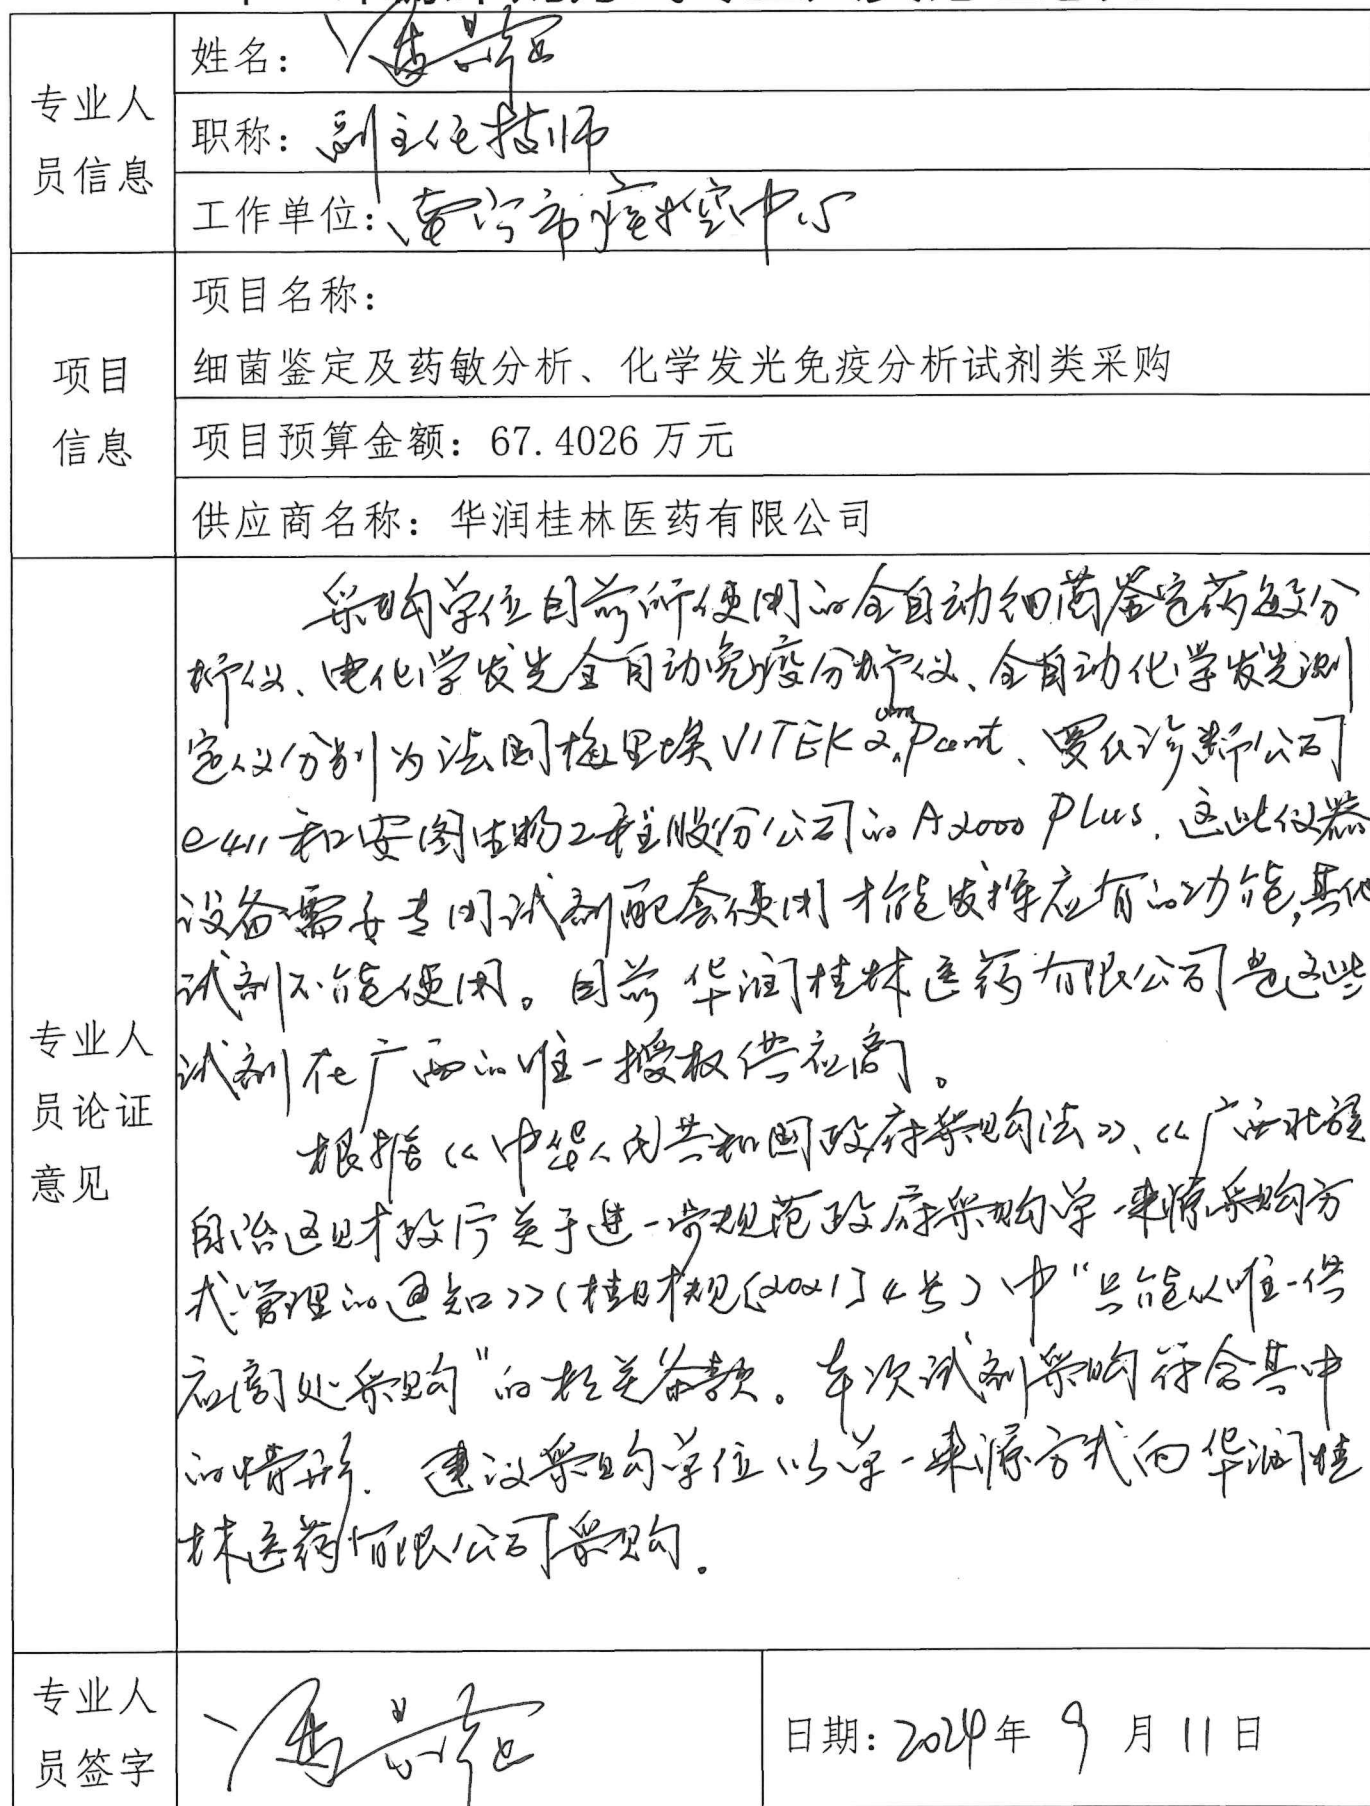 专业人员信息
姓名：
职称：副主任技师
工作单位：南宁市疾控中心
项目信息
项目名称：
细菌鉴定及药敏分析、化学发光免疫分析试剂类采购
项目预算金额：67.4026 万元
供应商名称：华润桂林医药有限公司
专业人员论证意见
采购单位目前所使用的全自动细菌鉴定药敏分
析仪、电化学发光全自动免疫分析仪、全自动化学发光测
定仪分别为法国梅里埃 VITEK 2 Compact、罗氏诊断公司
e411 和安图生物工程股份公司的 A2000 PLUS. 这些仪器
设备需要专用试剂配套使用才能发挥应有的功能,其他
试剂不能使用。目前华润桂林医药有限公司是这些
试剂在广西的唯一授权供应商。
根据《中华人民共和国政府采购法》、《广西壮族
自治区财政厅关于进一步规范政府采购单一来源采购方
式管理的通知》(桂财规〔2021〕4号)中“只能从唯一供
应商处采购”的相关条款。本次试剂采购符合其中
的情形. 建议采购单位以单一来源方式向华润桂
林医药有限公司采购.
专业人员签字
日期：2024年 9 月 11 日